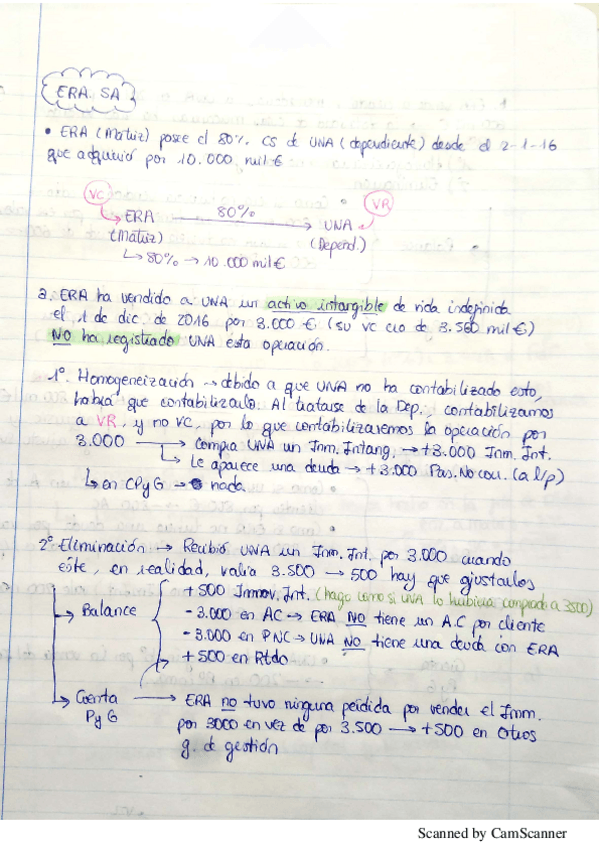 ERA SA
• ERA (Matriz) posee el 80% CS de UNA (dependiente) desde el 2-1-16
que adquirió por 10.000 mil €
VC
VR
ERA 80% → UNA
(Matriz) (Depend.)
↳ 80% → 10.000 mil €
a. ERA ha vendido a UNA un activo intangible de vida indefinida
el 1 de dic. de 2016 por 3.000 € (su VC era de 3.500 mil €)
NO ha registrado UNA esta operación.
1º. Homogeneización → debido a que UNA no ha contabilizado esto,
habrá que contabilizarlo. Al tratarse de la Dep., contabilizamos
a VR, y no VC, por lo que contabilizaremos la operación por
3.000 → Compra UNA un Inm. Intang. → +3.000 Inm. Int.
↳ Le aparece una deuda → +3.000 Pas. No corr. (a l/p)
↳ en CPyG → nada.
2º Eliminación → Recibió UNA un Inm. Int. por 3.000 cuando
éste, en realidad, valía 3.500 → 500 hay que ajustarlos
+500 Inmov. Int. (hago como si UNA lo hubiera comprado a 3500)
→ Balance
- 3.000 en AC → ERA NO tiene un A.C por cliente
- 3.000 en PNC → UNA NO tiene una deuda con ERA
+ 500 en Rtdo
→ Cuenta PyG
→ ERA no tuvo ninguna pérdida por vender el Inm.
por 3000 en vez de por 3.500 → +500 en Otros
g. de gestión
Scanned by CamScanner